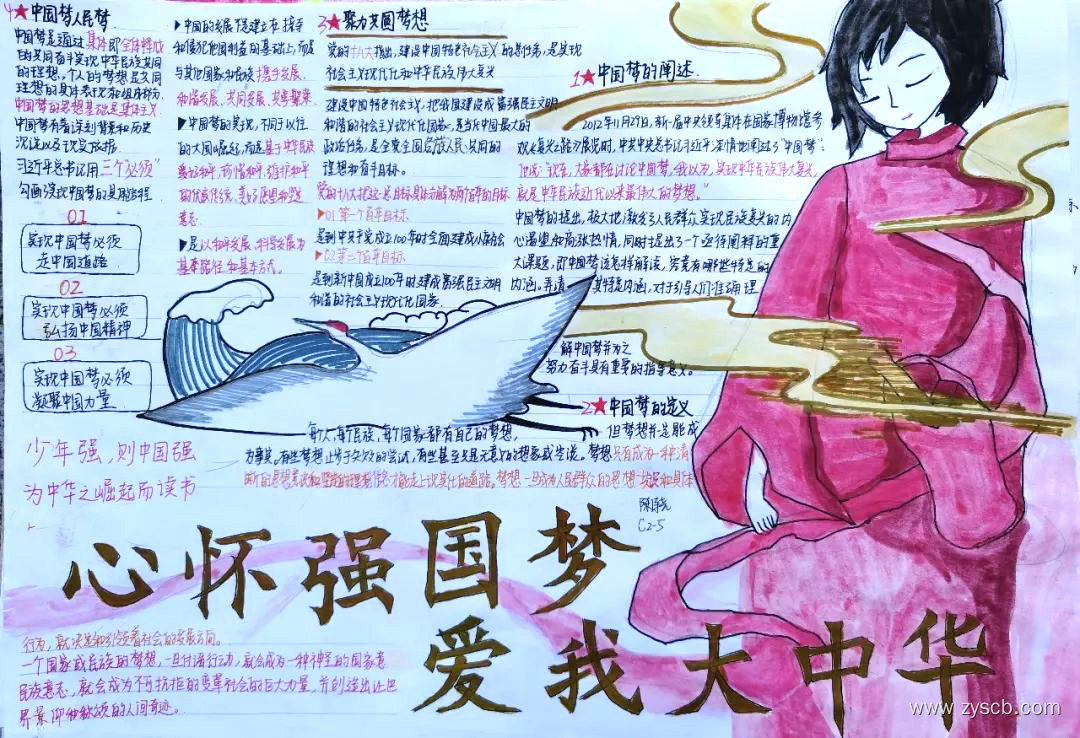 4★中国梦人民梦
中国梦是通过集体即全体群众
的共同奋斗实现中华民族共同
的理想。个人的梦想是共同
理想的具体表现和组成部分
中国梦的思想基础是集体主义
中国梦有着深刻背景和历史
沉淀以及现实依据
习近平总书记用"三个必须"
勾画实现中国梦的
01
实现中国梦必须
走中国道路
02
实现中国梦必须
弘扬中国精神
03
实现中国梦必须
凝聚中国力量
少年强,则中国强
为中华之崛起而读书
▶中国的发展不是建立在掠夺
和侵犯他国利益的基础上,而是
与其他国家和民族携手发展、
和谐发展、共同发展、共享繁荣
▶中国梦的实现,不同于以往
的大国崛起,而是基于中华民族
爱好和平、珍惜和平、维护和平
的优良传统、美好愿望和坚定
意志
▶是以和平发展、科学发展为
基本路径和基本方式。
3★聚力共圆梦想
党的十八大指出,建设中国特色社会主义的总任务,是实现
社会主义现代化和中华民族伟大复兴
建设中国特色社会主义,把我国建设成富强民主文明
和谐的社会主义现代化国家,是当代中国最大的
政治任务,是全党全国各族人民共同的
理想和奋斗目标。
党的十八大把这一总目标具体分解为两个百年的目标
▶01第一个百年目标
是到中共平党成立100年时全面建成小康社会
▶02第二个百年目标
是到新中国成立100年时建成富强民主文明
和谐的社会主义现代化国家
1★中国梦的阐述
2012年11月29日,新一届中央领导集体在国家博物馆参
观《复兴之路》展览时,中共中央总书记习近平深情地阐述了"中国梦":
他说:"现在,大家都在讨论中国梦,我以为,实现中华民族伟大复兴,
就是中华民族近代以来最伟大的梦想。"
中国梦的提出,极大地激发了人民群众实现民族复兴的内
心渴望和高涨热情,同时提出了一个亟待阐释的重
大课题,即中国梦该怎样解读,究竟有哪些特定的
内涵。弄清其特定内涵,对于引导人们准确理
解中国梦并为之
努力奋斗具有重要的指导意义。
2★中国梦的定义
每个人,每个民族,每个国家都有自己的梦想,但梦想并非都能成
为事实。有些梦想止步于失败的尝试,有些甚至只是无意义的想象或传说。梦想只有成为一种清
晰的思想意识和坚定的理想信念,才能走上现实化的道路。梦想一旦成为人民群众的思想共识和具体
陈
C2-5
心怀强国梦
爱我大中华
行为,就决定和引领着社会的发展方向。
一个国家或民族的梦想,一旦付诸行动,就会成为一种神圣的国家意
民族意志,就会成为不可抗拒的变革社会的巨大力量,并创造出让世
界景仰和称颂的人间奇迹。
www.zyscb.com